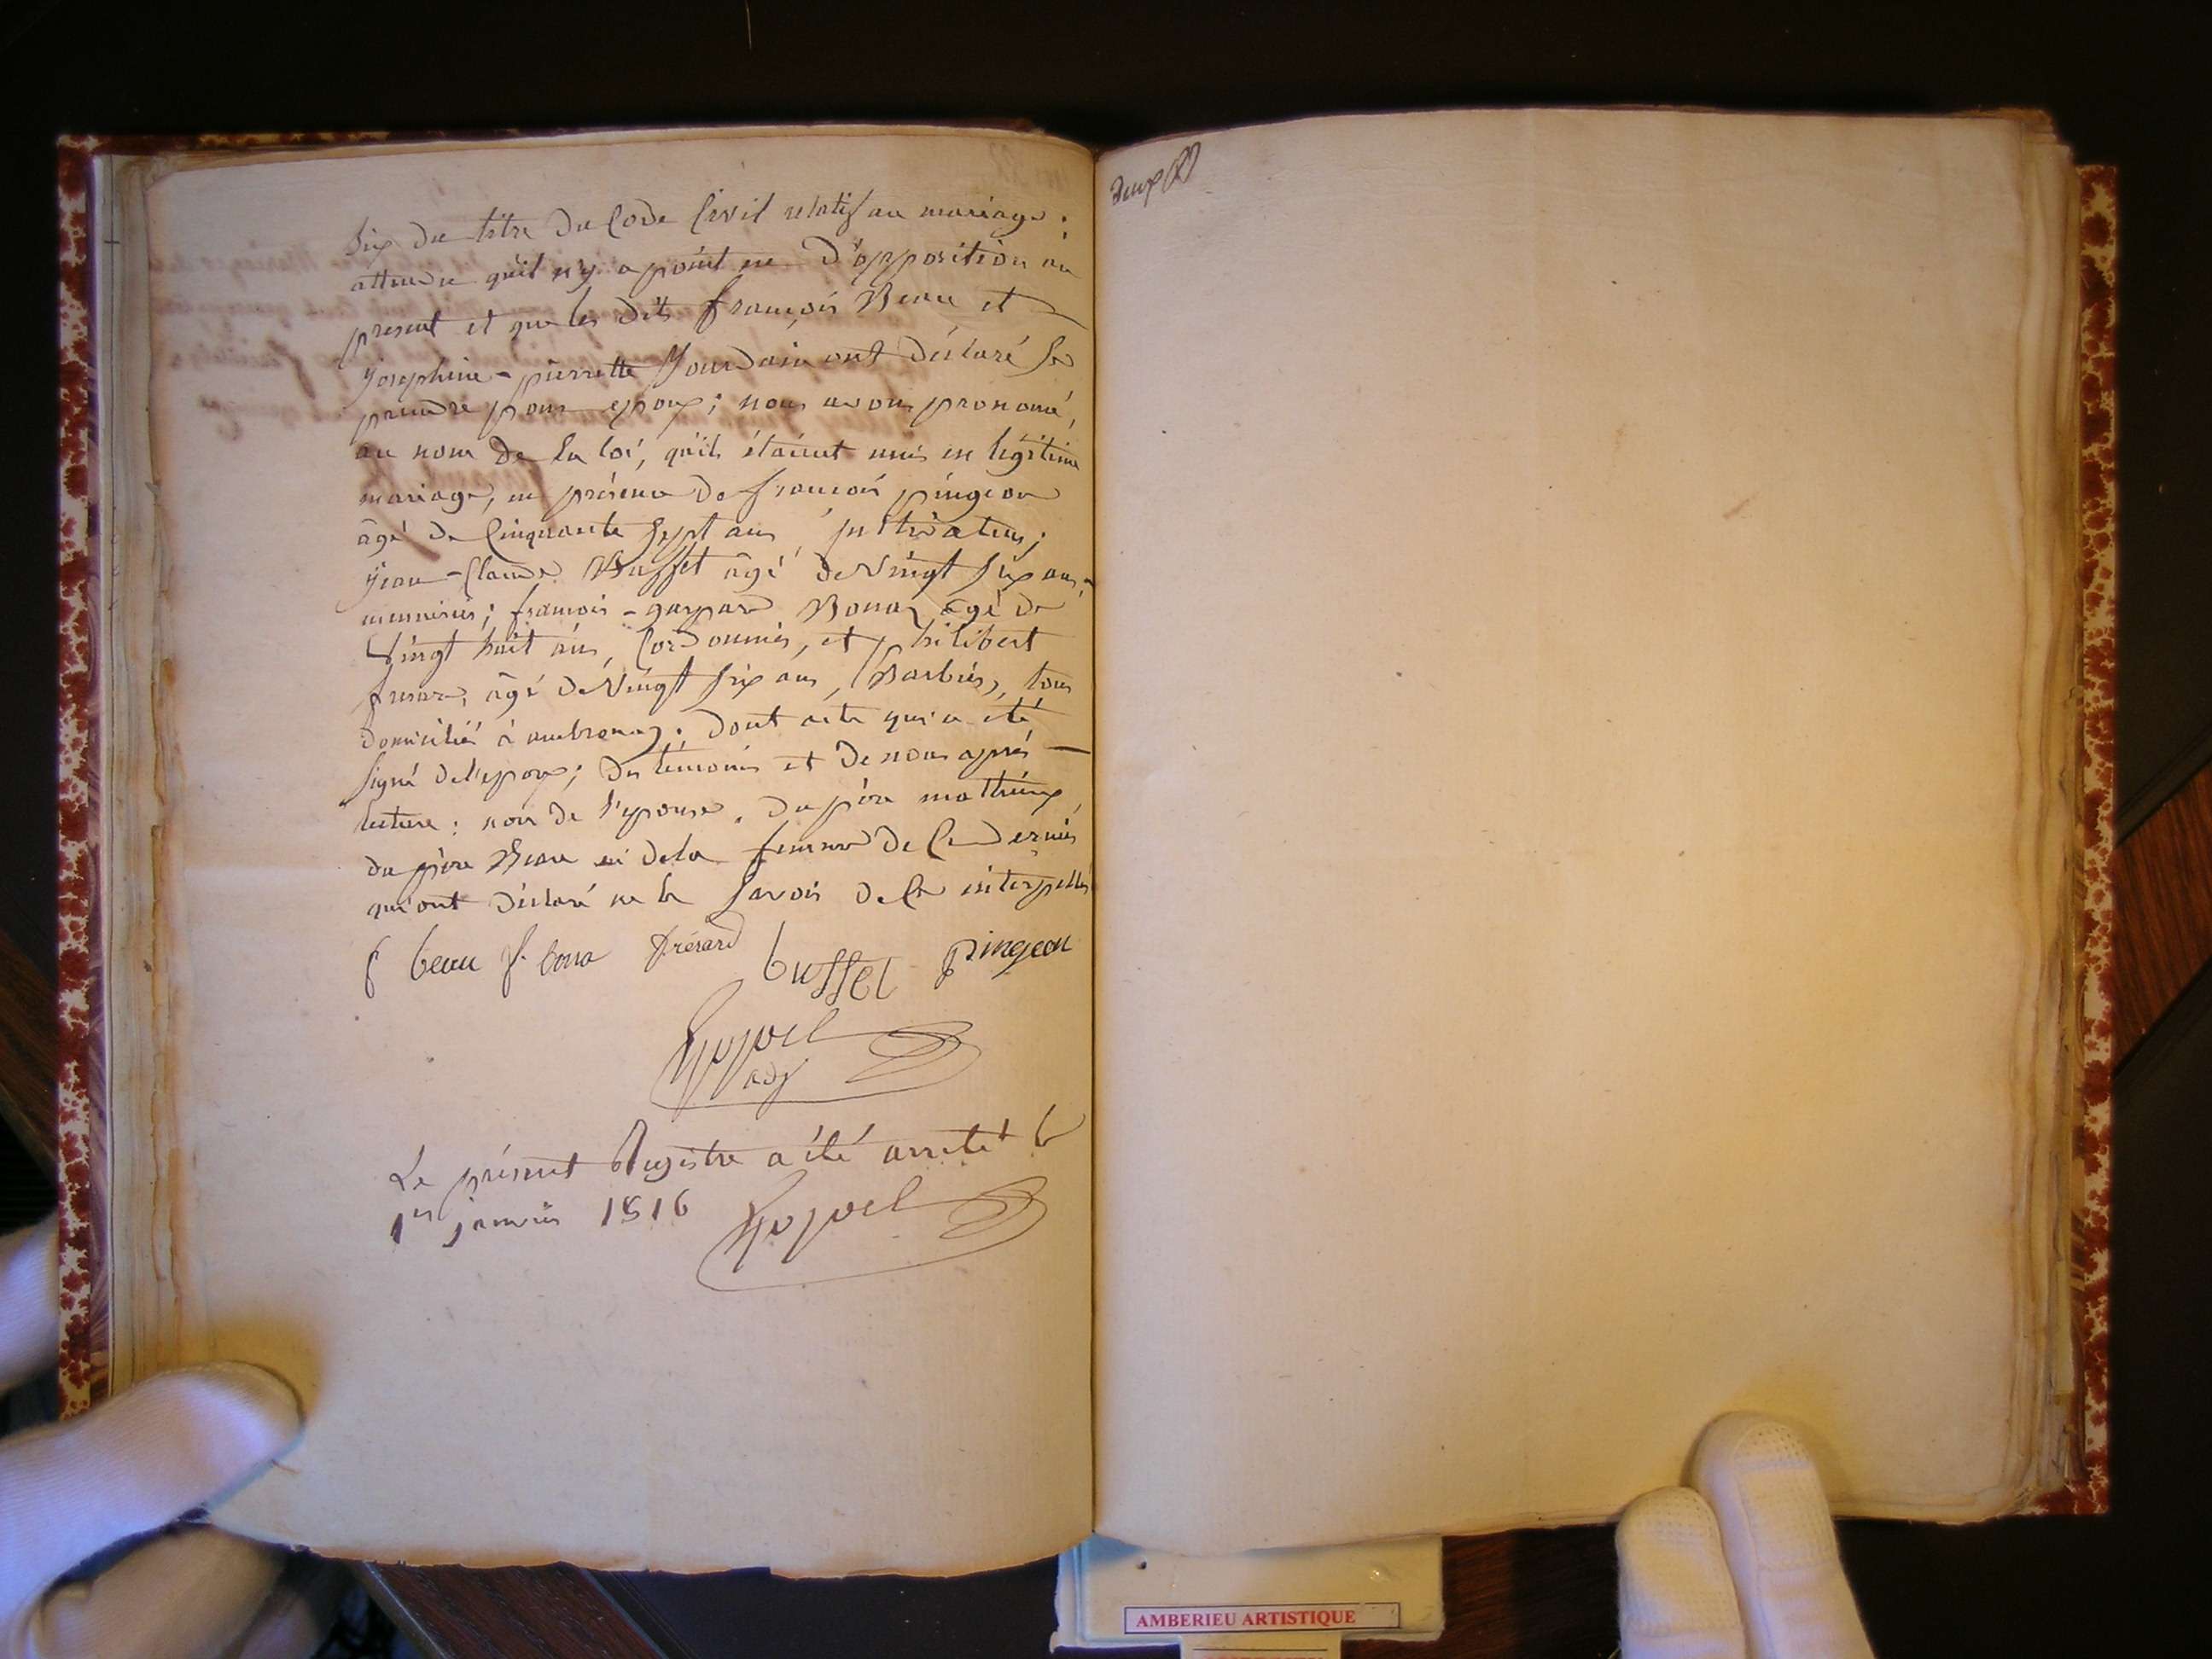 six du titre du Code Civil relatif au mariage;
attendu qu'il n'y a point eu d'opposition au
present et que les dits françois Beau et
Josephine - pierrette Jourdain ont déclaré se
prendre pour epoux; nous avons prononcé,
au nom de la loi, qu'ils étaient unis en légitime
mariage, en présence de françois pingeon
âgé de Cinquante sept ans,
Jean - Claude Buffet âgé de vingt six ans,
menuisier; françois - gaspard Bona âgé de
vingt huit ans, Cordonnier, et philibert
âgé de vingt six ans, Barbier, tous
domiciliés à ambronay. dont acte qui a été
signé de l'epoux; des temoins et de nous après
lecture: non de l'epouse, du père
du père Beau ni de la femme de Ce dernier
qui ont déclaré ne le savoir de Ce interpellés
f beau f. bona frésard buffet pingeon
adj
Le présent Registre a été arreté le
1er janvier 1816
deux
AMBERIEU ARTISTIQUE